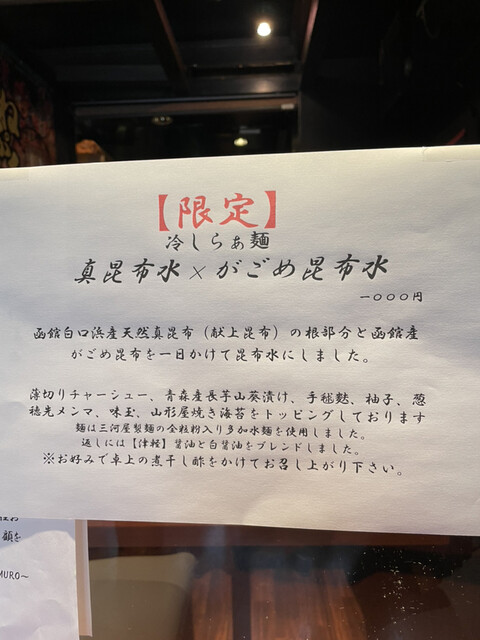 【限定】
冷しらぁ麺
真昆布水×がごめ昆布水
一〇〇〇円
函館白口浜産天然真昆布（献上昆布）の根部分と函館産
がごめ昆布を一日かけて昆布水にしました。
薄切りチャーシュー、青森産長芋山葵漬け、手毬麩、柚子、葱
穂先メンマ、味玉、山形屋焼き海苔をトッピングしております
麺は三河屋製麺の全粒粉入り多加水麺を使用しました。
返しには【津軽】醤油と白醤油をブレンドしました。
※お好みで卓上の煮干し酢をかけてお召し上がり下さい。
顔を
MURO～